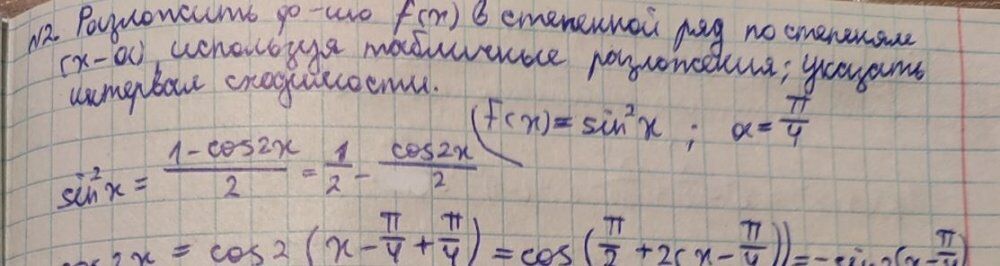 №2. Разложить ф-цию f(x) в степенной ряд по степеням
(x-a), используя табличные разложения; указать
интервал сходимости.
f(x) = sin²x ; a = π/4
sin²x = (1-cos2x)/2 = 1/2 - cos2x/2
cos2x = cos2(x - π/4 + π/4) = cos(π/2 + 2(x - π/4)) = -sin2(x - π/4)